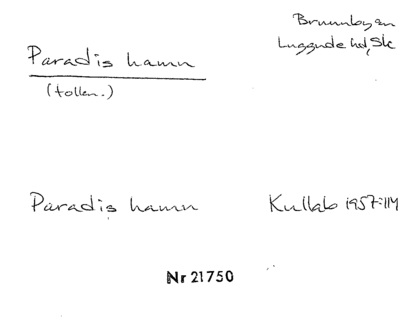 Paradis hamn
(tollen.)
Brunnbyan
Luggude hd, Sk
Paradis hamn
Kullab 1957:114
Nr 21750